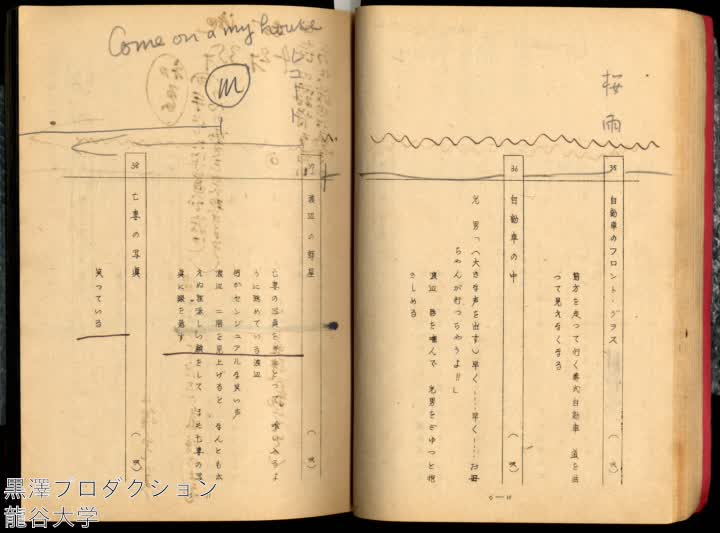 桜
雨
35 自動車のフロント・グラス (唄)
前方を走って行く葬式自動車 道を曲
って見えなくなる
36 自動車の中 (唄)
光男「(大きな声を出す)早く……早く……お母
ちゃんが行っちゃうよ!!」
渡辺 唇を噛んで 光男をぎゆっと抱
きしめる
6—10
Come on a my house
M
37 渡辺の部屋 (唄)
亡妻の写真を
うに眺めている渡辺
何かセンジュアルな笑い声
渡辺 二階を見上げると なんとも云
えぬ 顔をして また亡妻の写
真に眼を落す
38 亡妻の写真 (唄)
笑っている
黒澤プロダクション
龍谷大学